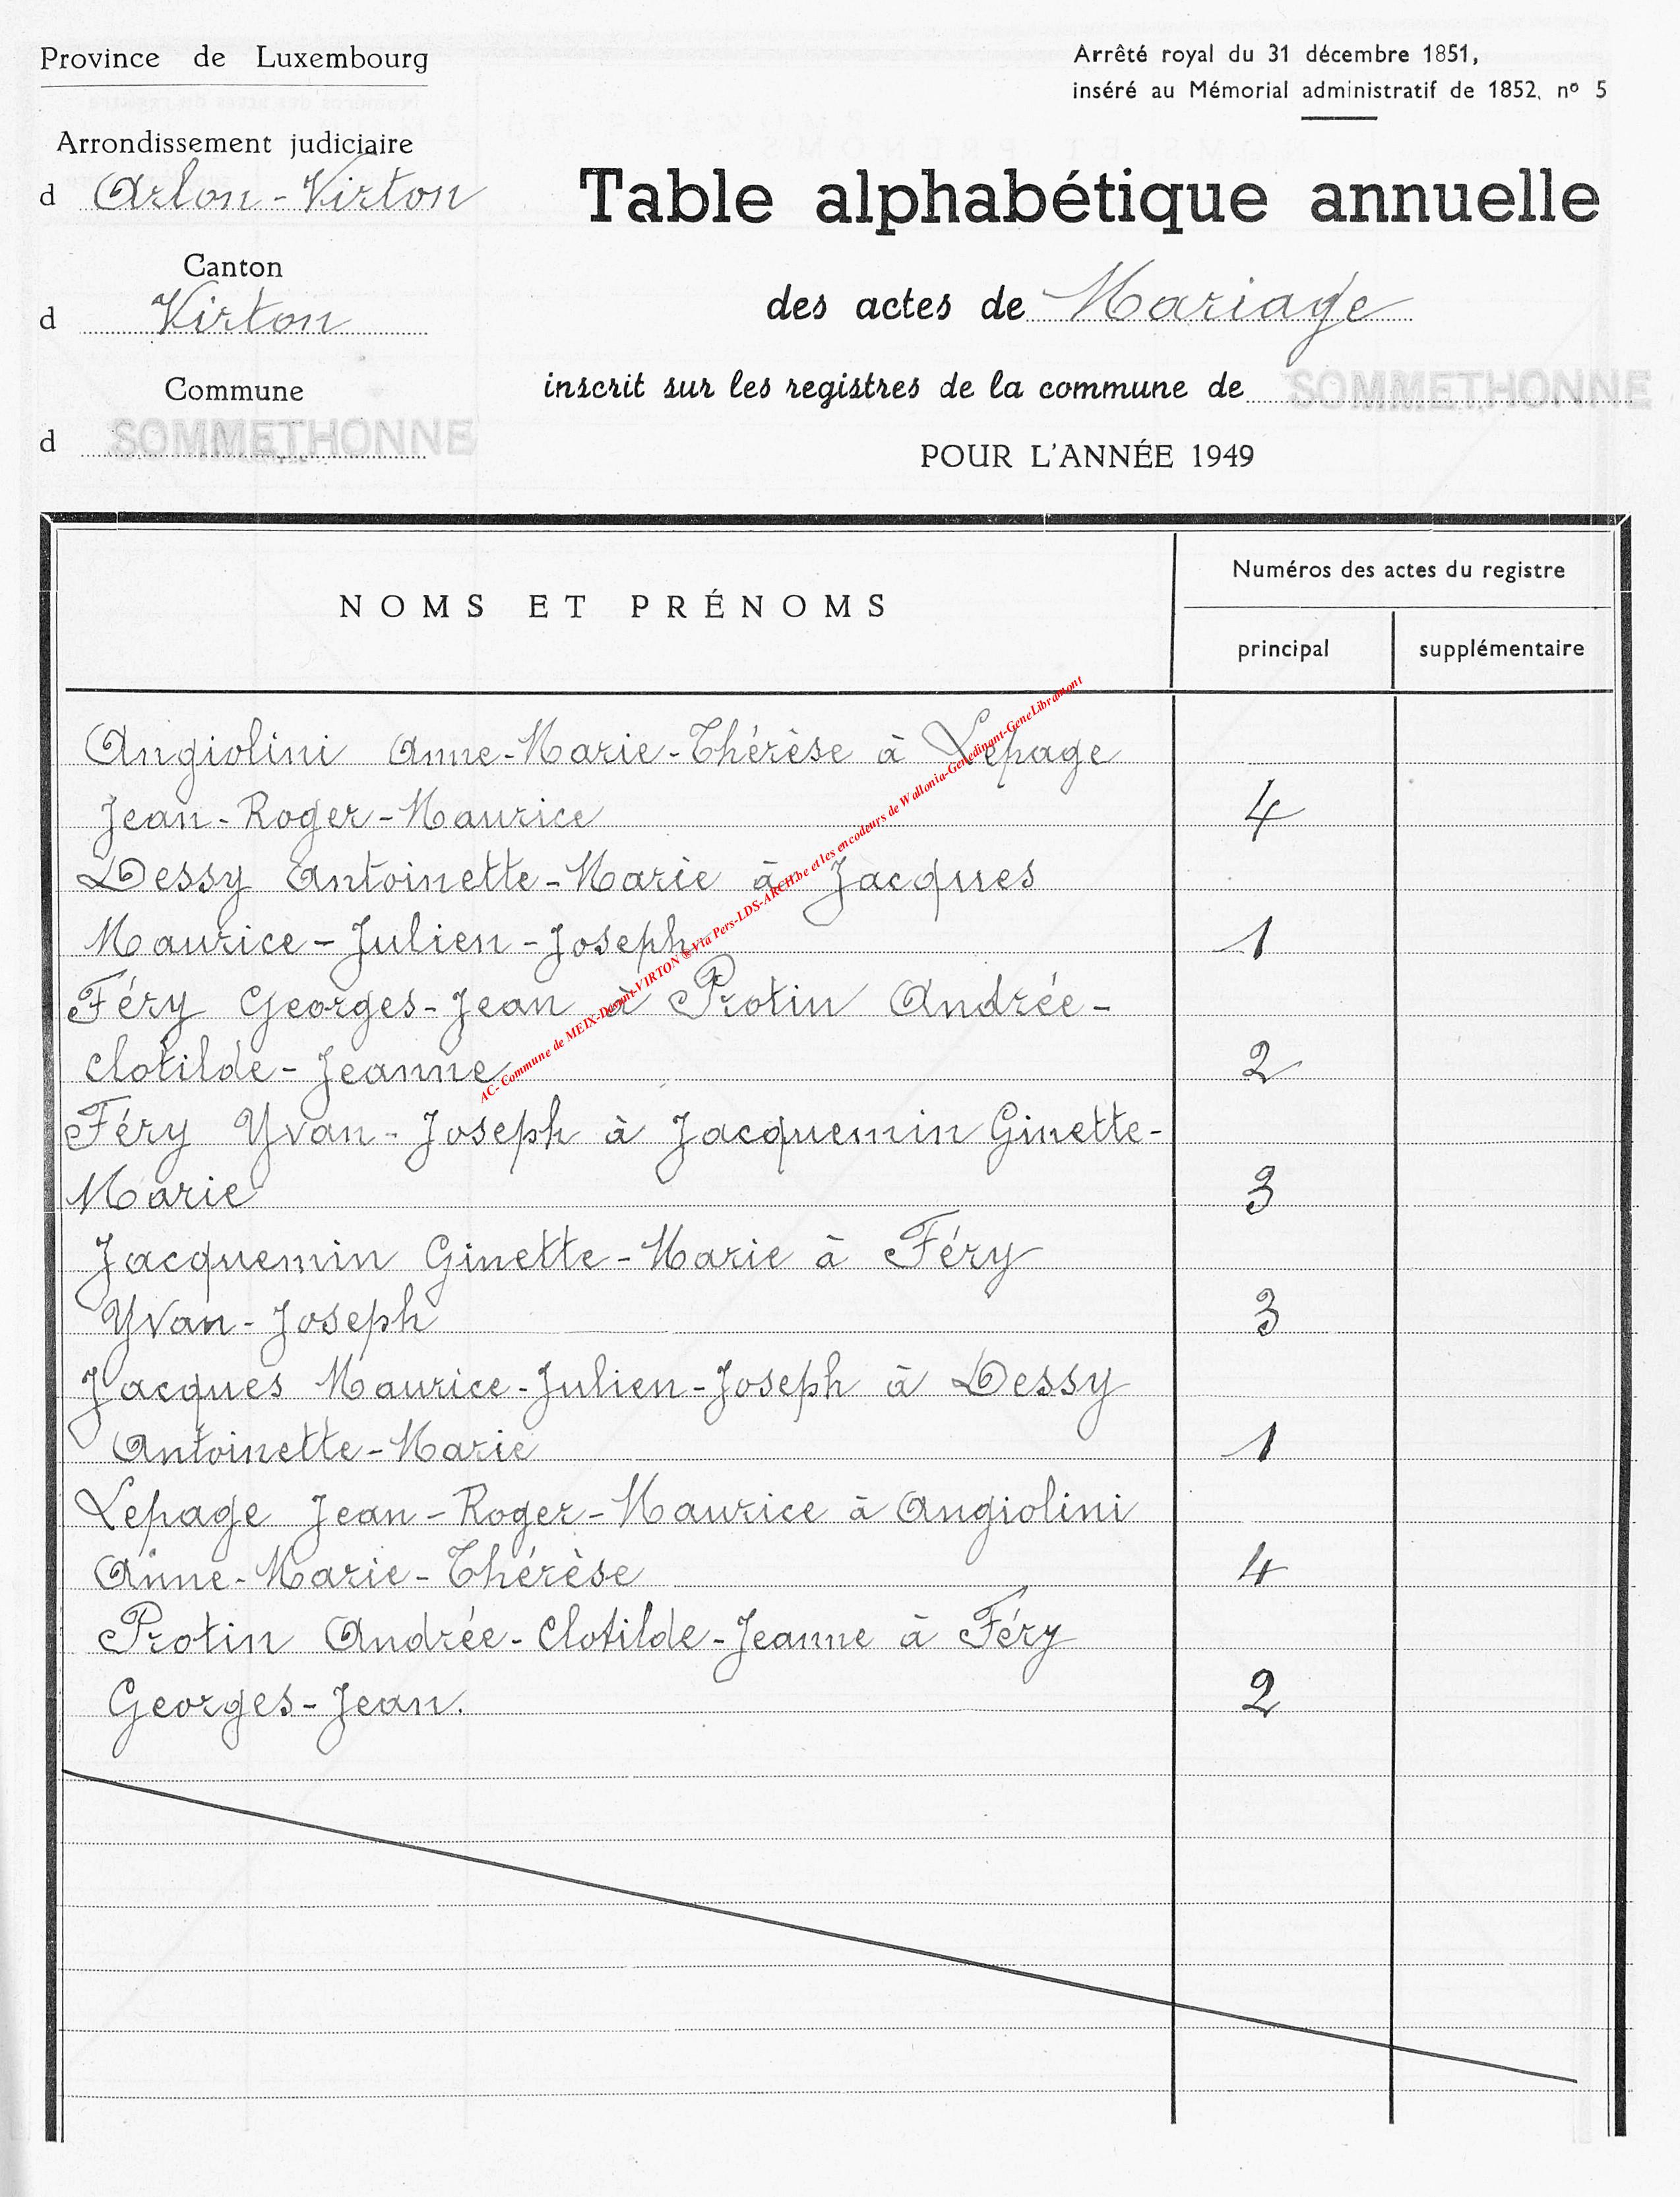 Province de Luxembourg
Arrêté royal du 31 décembre 1851,
inséré au Mémorial administratif de 1852, nº 5
Arrondissement judiciaire
d Arlon-Virton
Table alphabétique annuelle
Canton
d Virton
des actes de Mariage
Commune
d SOMMETHONNE
inscrit sur les registres de la commune de SOMMETHONNE
POUR L'ANNÉE 1949
NOMS ET PRÉNOMS
Numéros des actes du registre
principal
supplémentaire
Angiolini Anne-Marie-Thérèse à Lepage
Jean-Roger-Maurice 4
Dessy Antoinette-Marie à Jacques
Maurice-Julien-Joseph 1
Féry Georges-Jean à Protin Andrée-
Clotilde-Jeanne 2
Féry Yvan-Joseph à Jacquemin Ginette-
Marie 3
Jacquemin Ginette-Marie à Féry
Yvan-Joseph 3
Jacques Maurice-Julien-Joseph à Dessy
Antoinette-Marie 1
Lepage Jean-Roger-Maurice à Angiolini
Anne-Marie-Thérèse 4
Protin Andrée-Clotilde-Jeanne à Féry
Georges-Jean. 2
AC- Commune de MEIX-Devant-VIRTON ®Via Pers-LDS-ARCH.be et les encodeurs de Wallonia-Genedinant-GeneLibramont